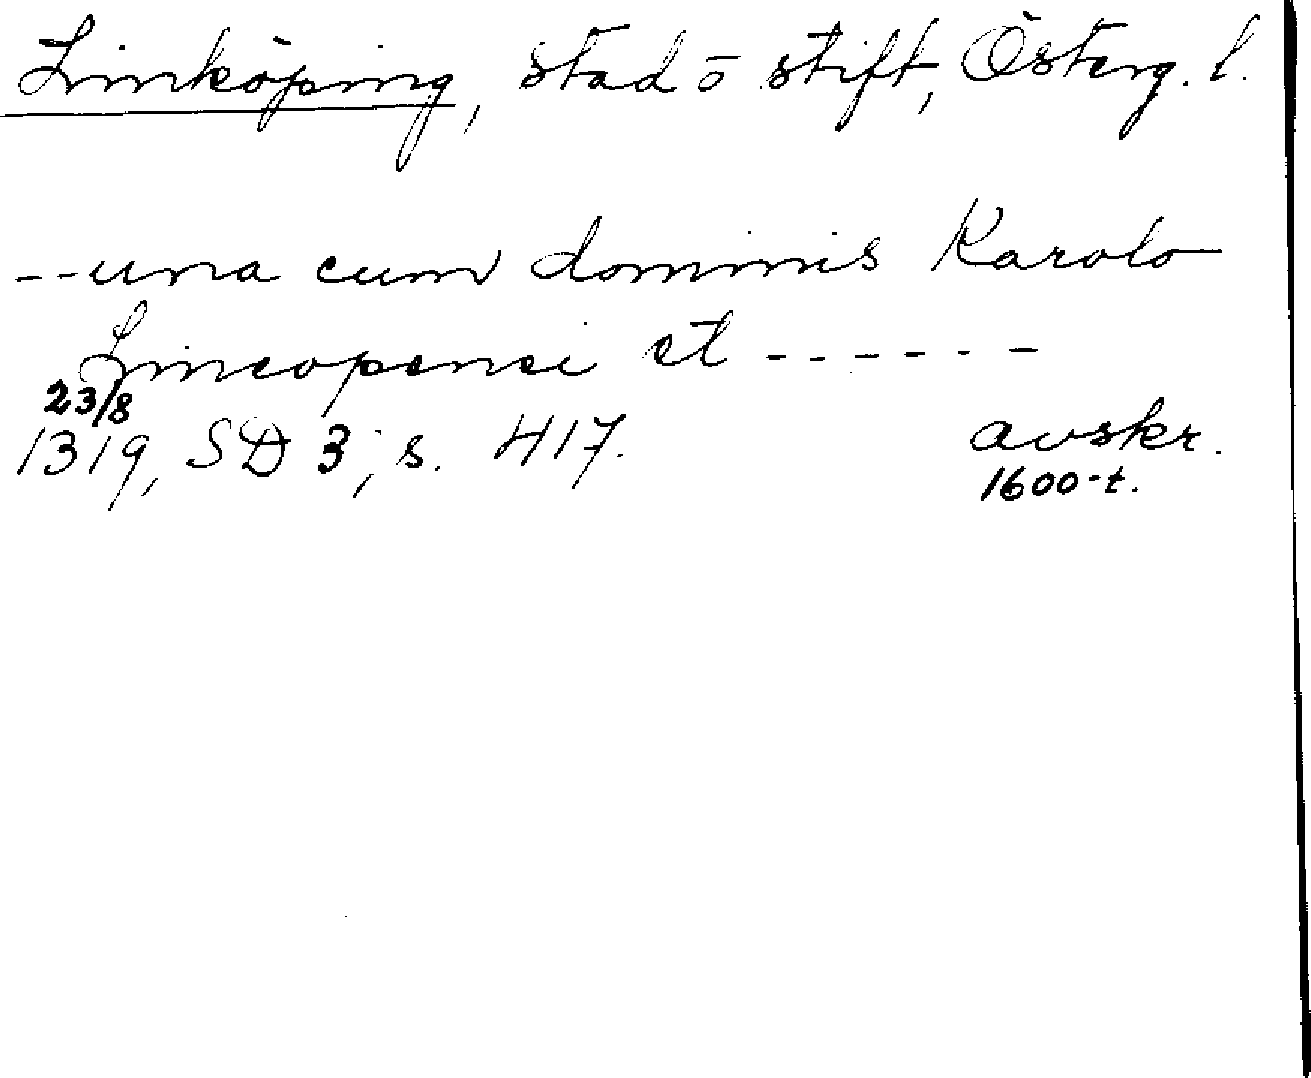 Linköping, stad o stift, Österg. l.
--una cum dominis Karolo
Lincopensi et ------
23/8
1319, SD 3, s. 417. avskr.
1600-t.